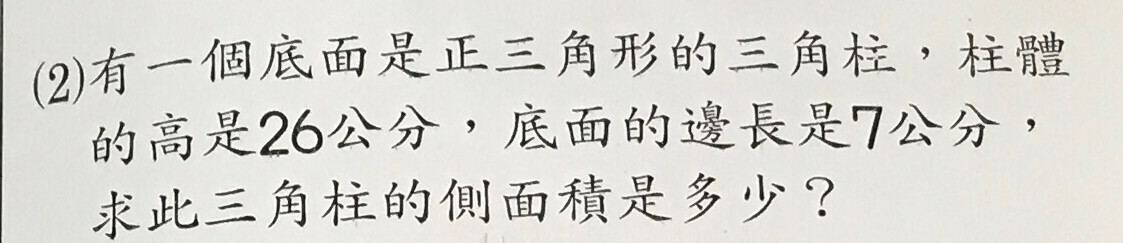 (2)有一個底面是正三角形的三角柱，柱體
的高是26公分，底面的邊長是7公分，
求此三角柱的側面積是多少？